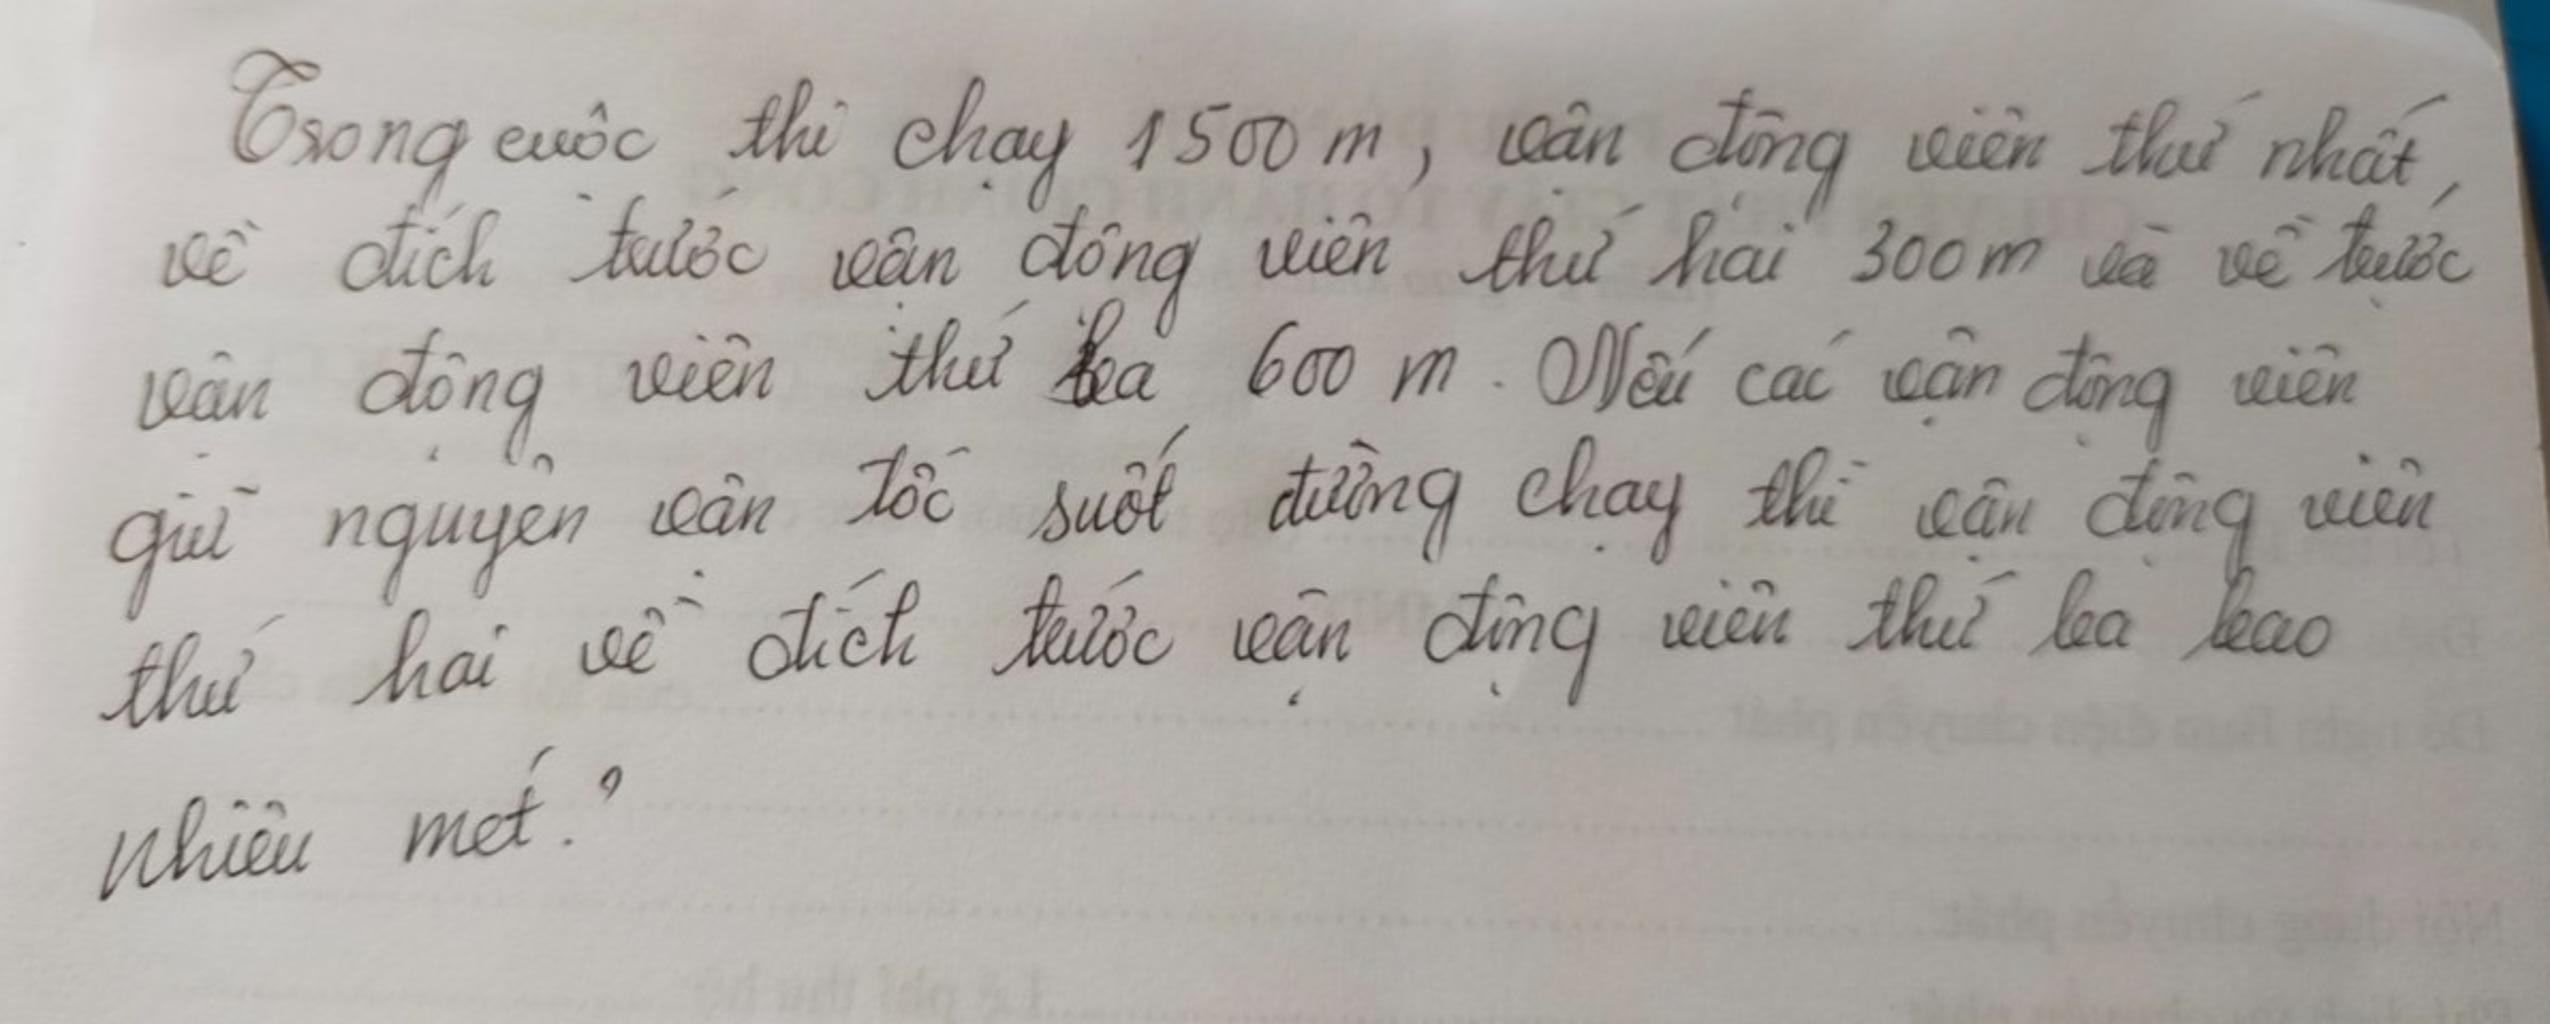 Trong cuộc thi chạy 1500 m, vận động viên thứ nhất,
về đích trước vận động viên thứ hai 300m và về trước
vận động viên thứ ba 600 m. Nếu các vận động viên
giữ nguyên vận tốc suốt đường chạy thì vận động viên
thứ hai về đích trước vận động viên thứ ba bao
nhiêu mét?
Đề nghị Bưu điện chuyển phát
Nội dung chuyển phát:
Lệ phí thu hộ